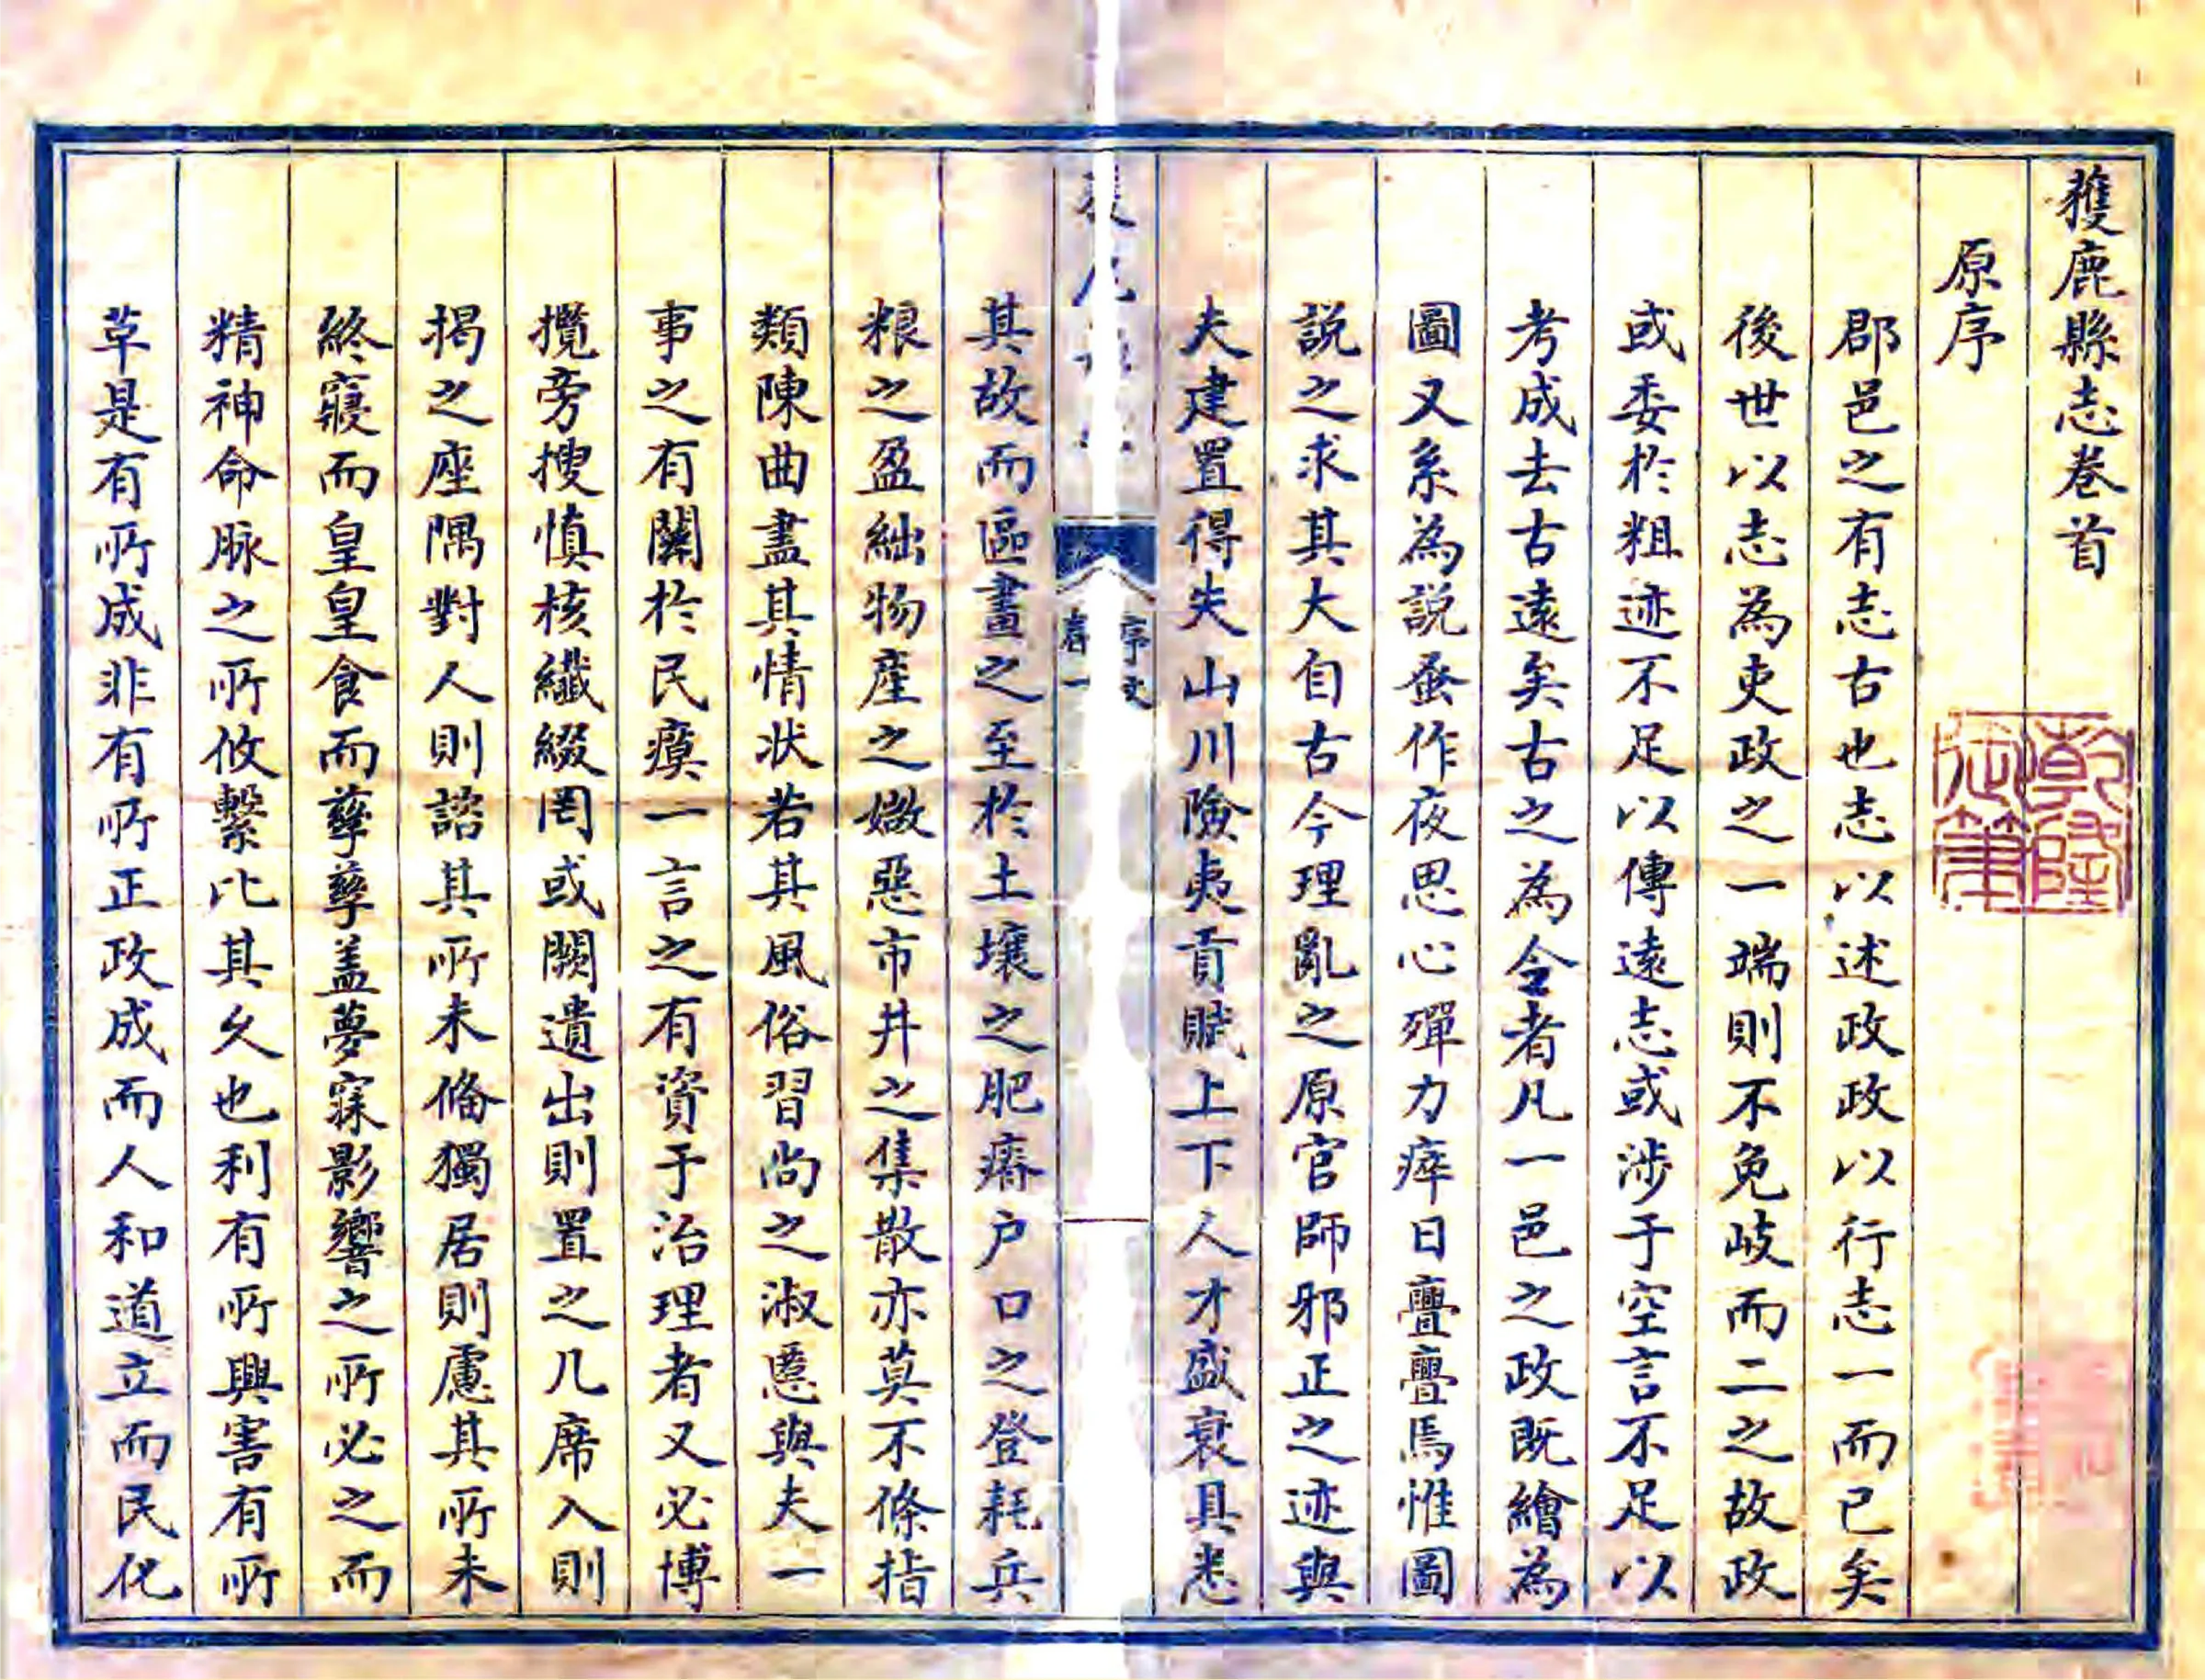 獲鹿縣志卷首
原序
郡邑之有志古也志以述政政以行志一而已矣
後世以志為吏政之一端則不免岐而二之故政
或委於粗迹不足以傳遠志或涉于空言不足以
考成去古遠矣古之為令者凡一邑之政既繪為
圖又系為說蚤作夜思心殫力瘁日亹亹焉惟圖
說之求其大自古今理亂之原官師邪正之迹與
夫建置得失山川險夷貢賦上下人才盛衰具悉
序文
卷一
其故而區畫之至於土壤之肥瘠户口之登耗兵
粮之盈絀物産之媺惡市井之集散亦莫不條指
類陳曲盡其情状若其風俗習尚之淑慝與夫一
事之有關於民瘼一言之有資于治理者又必博
攬旁搜慎核纖綴罔或闕遺出則置之几席入則
揭之座隅對人則諮其所未脩獨居則慮其所未
終寢而皇皇食而孳孳盖夢寐影響之所必之而
精神命脉之所攸繫比其久也利有所興害有所
草是有所成非有所正政成而人和道立而民化